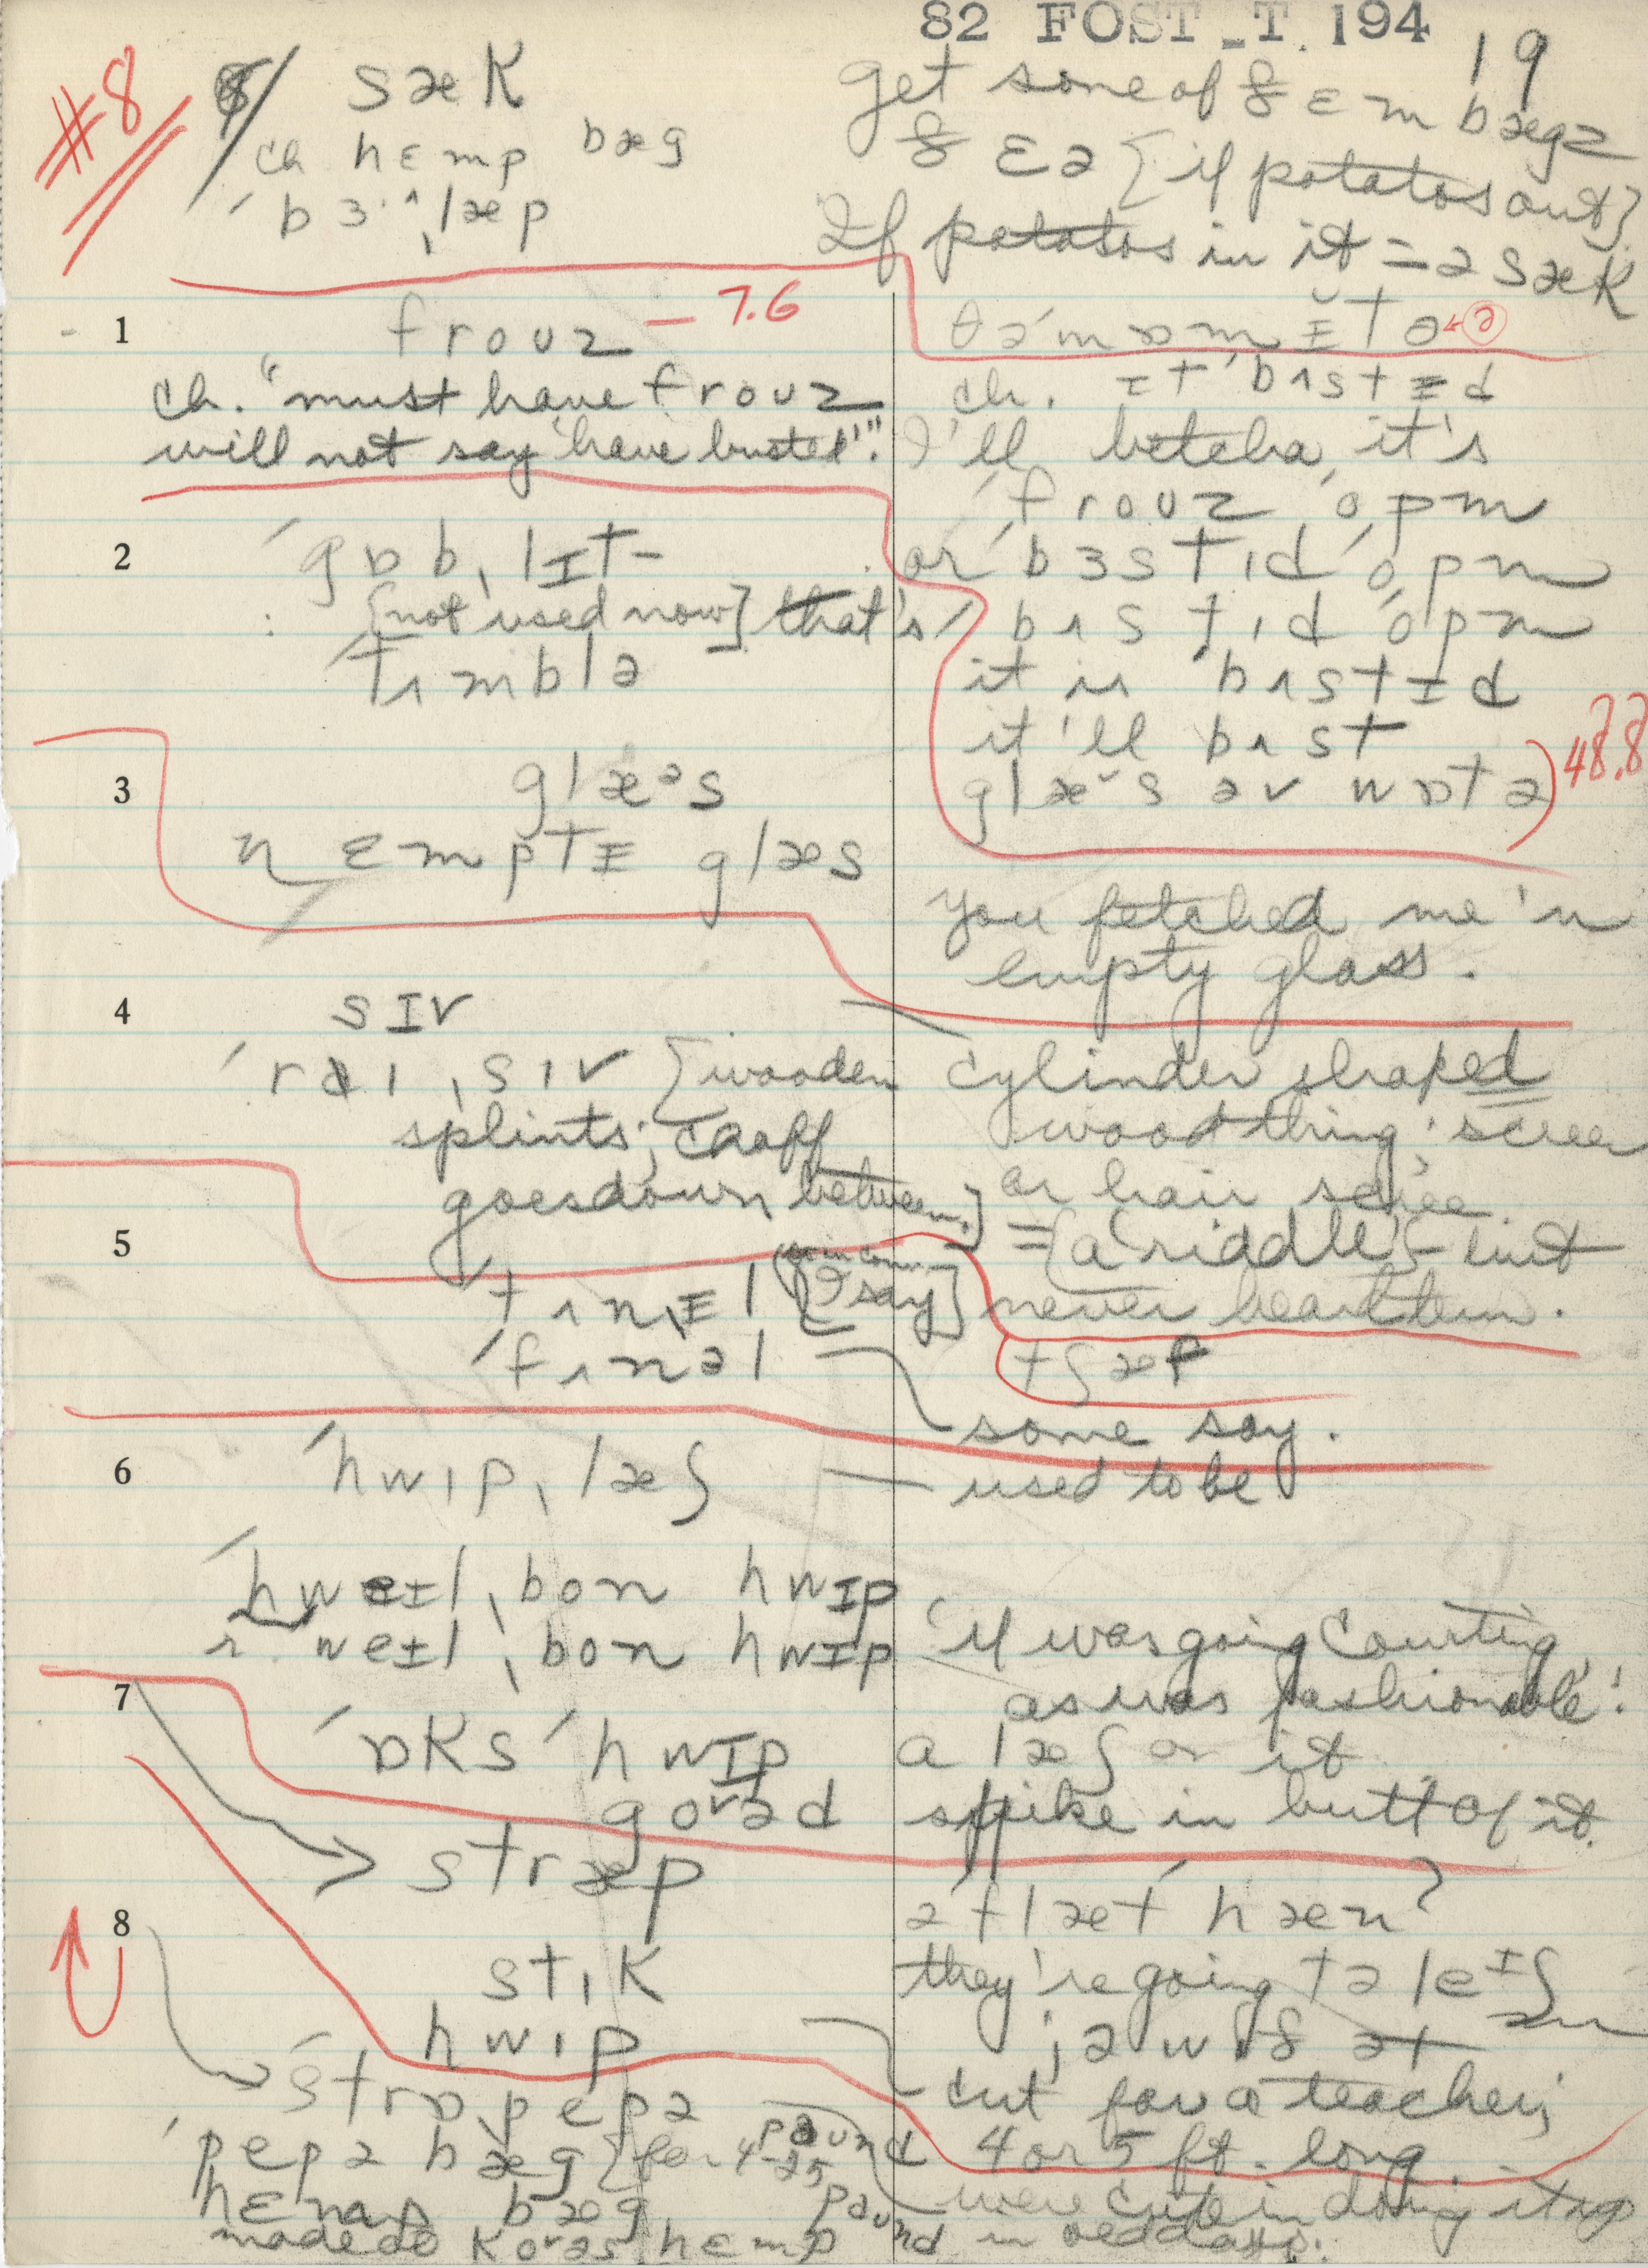 82 FOST_T. 194
19
#8
sæk
ch hɛmp bæg
ˈbɜ˞ˌlæp
get some of ðɛm bægz
ðɛə {if potatos out}
If potatos in it = ə sæk
1
frouz — 7.6
ch. "must have frouz
will not say 'have busted'."
ch. ɪt bʌstɪd
I'll betcha it's
frouz opm
or bɜstid opm
bʌstid opm
it is bʌstɪd
it'll bʌst
glæs əv wɒtə
48.8
2
ˈgɒbˌlɪt -
[not used now] that's
ˈtʌmblə
3
glæᵊs
n ɛmptɪ glæs
you fetched me 'n
empty glass.
4
sɪv
ˈraiˌsiv [wooden
splints; chaff
goes down between.]
cylinder shaped
wood thing; screen
or hair
= {a 'riddle'} - but
never heard term.
5
tʌnɪl [I say]
ˈfʌnəl
tʃæf
some say.
6
ˈhwipˌlæʃ
used to be
ˈhweɪlˌbon hwɪp
weɪlˌbon hwɪp
'if was going courting
as was fashionable'!
7
ˈɒks ˈhwɪp
a læʃ on it
spike in butt of it.
stræp
ə flæt hæn?
they're going tə leɪʃ
jə wið ət
8
stik
hwip
cut for a teacher;
4 or 5 ft. long.
ˈstrɒ pepə
ˈpepə bæg {for 4-25 paund
hɛmp bæg
were cute in doing it up
in old days.
made o korəs hɛmp